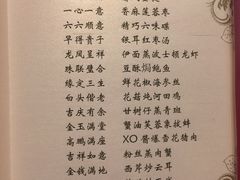 一心一意　香麻莲蓉枣
六六顺意　精巧六味碟
早得贵子　银耳红枣汤
龙凤呈祥　伊面蒸波士顿龙虾
珠联璧合　豆酥焗鲍鱼
缘定三生　鲜花椒海参丝
白头偕老　花菇炖河鸭
吉庆有余　甘树仔蒸青斑
金玉满堂　蟹油芙蓉象拔蚌
高鹏满座　XO酱爆杏花猪肉
吉祥如意　粉丝蒸肉蟹
金钱满地　西芹炒云耳